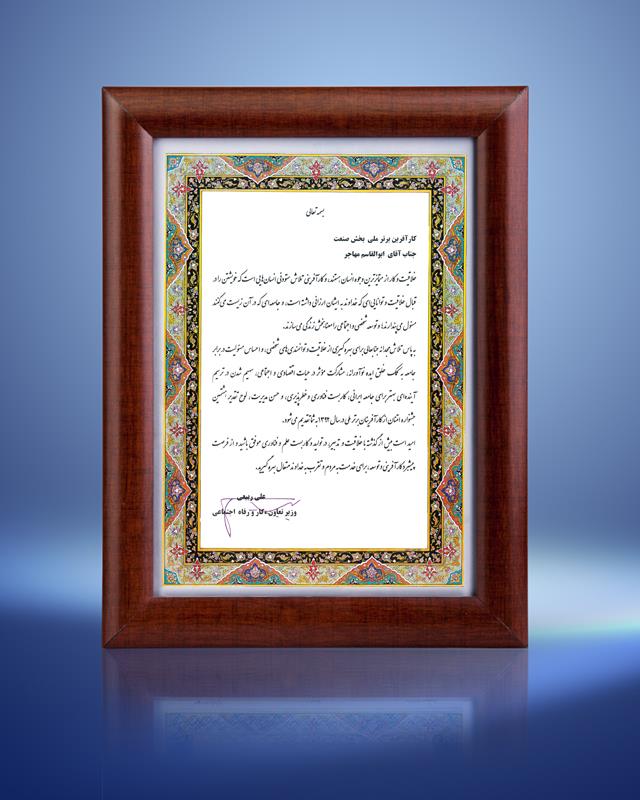 بسمه تعالی
کارآفرین برتر ملی بخش صنعت
جناب آقای ابوالقاسم مهاجر
خلاقیت و کار از متمایزترین وجوه انسان هستند، و کارآفرینی تلاش ستودنی انسان‌هایی است که خویشتن را در
قبال خلاقیت و توانایی‌ای که خداوند به ایشان ارزانی داشته است، و جامعه‌ای که در آن زیست می‌کنند
مسئول می‌پندارند، و توسعه شخصی و اجتماعی را معنابخش زندگی می‌سازند.
به پاس تلاش مجدانه جنابعالی برای بهره‌گیری از خلاقیت و توانمندی‌های شخصی، و احساس مسئولیت در برابر
جامعه به کمک خلق ایده نوآورانه، مشارکت مؤثر در حیات اقتصادی و اجتماعی، سهیم شدن در ترسیم
آینده‌ای بهتر برای جامعه ایرانی، کاربست فناوری و خطرپذیری، و حسن مدیریت، لوح تقدیر هشتمین
جشنواره امتنان از کارآفرینان برتر ملی در سال ۱۳۹۳ به شما تقدیم می‌شود.
امید است بیش از گذشته با خلاقیت و تدبیر، در تولید و کاربست علم و فناوری موفق باشید و از فرصت
پیشبرد کارآفرینی و توسعه، برای خدمت به مردم و تقرب به خداوند متعال بهره گیرید.
علی ربیعی
وزیر تعاون، کار و رفاه اجتماعی